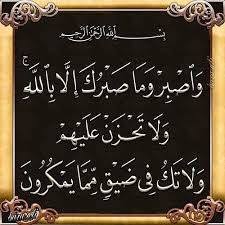 بِسْمِ اللَّهِ الرَّحْمَٰنِ الرَّحِيمِ
وَاصْبِرْ وَمَا صَبْرُكَ إِلَّا بِاللَّهِ ۚ
وَلَا تَحْزَنْ عَلَيْهِمْ
وَلَا تَكُ فِي ضَيْقٍ مِمَّا يَمْكُرُونَ